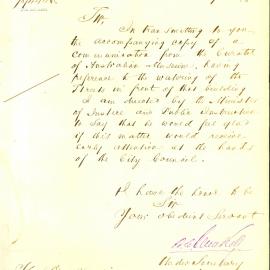 Sir
In transmitting to you
the accompanying copy of a
communication from the Curator
of Australian Museum, having
reference to the watering of the
Streets in front of this building
I am directed by the Minister
of Justice and Public Instruction
to say that he would feel glad
if this matter would receive
early attention at the hands
of the City Council.
I have the honor to be
Sir
Your obedient Servant
Under Secretary